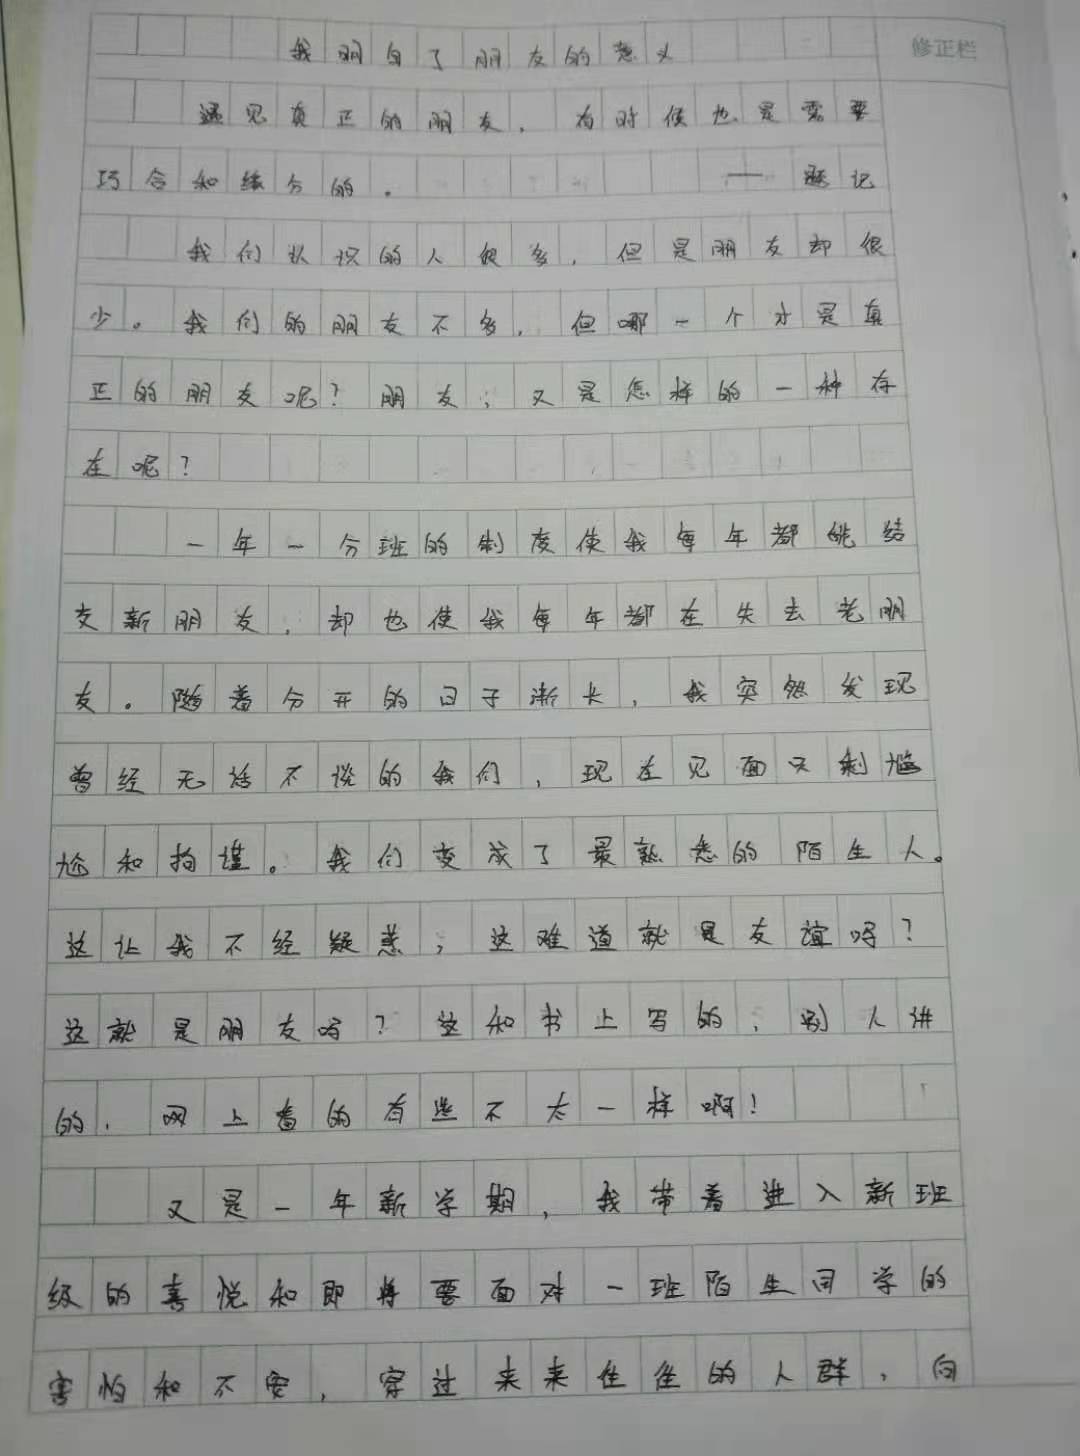 我明白了朋友的意义
修正栏
遇见真正的朋友，有时候也是需要
巧合和缘分的。 ——题记
我们认识的人很多，但是朋友却很
少。我们的朋友不多，但哪一个才是真
正的朋友呢？朋友，又是怎样的一种存
在呢？
一年一分班的制度使我每年都能结
交新朋友，却也使我每年都在失去老朋
友。随着分开的日子渐长，我突然发现
曾经无话不谈的我们，现在见面只剩尴
尬和拘谨。我们变成了最熟悉的陌生人。
这让我不经疑惑，这难道就是友谊吗？
这就是朋友吗？这和书上写的，别人讲
的，网上看的有些不太一样啊！
又是一年新学期，我带着进入新班
级的喜悦和即将要面对一班陌生同学的
害怕和不安，穿过来来往往的人群，向